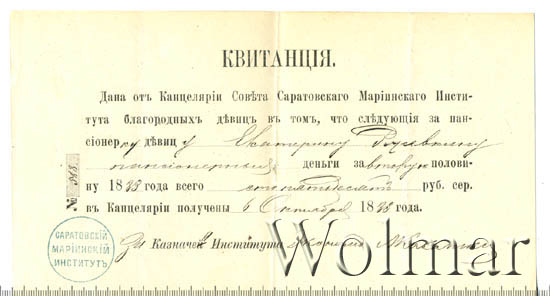 КВИТАНЦІЯ.
Дана отъ Канцеляріи Совѣта Саратовскаго Маріинскаго Инсти-
тута благородныхъ дѣвицъ въ томъ, что слѣдующія за пан-
сіонерку дѣвицу Екатерину
пансіонерныя деньги за вторую полови-
ну 18 года всего сто пятьдесятъ руб. сер.
въ Канцеляріи получены 6 Октября 18 года.
№
Казначей Института
САРАТОВСКІЙ
МАРІИНСКІЙ
ИНСТИТУТЪ
Wolmar